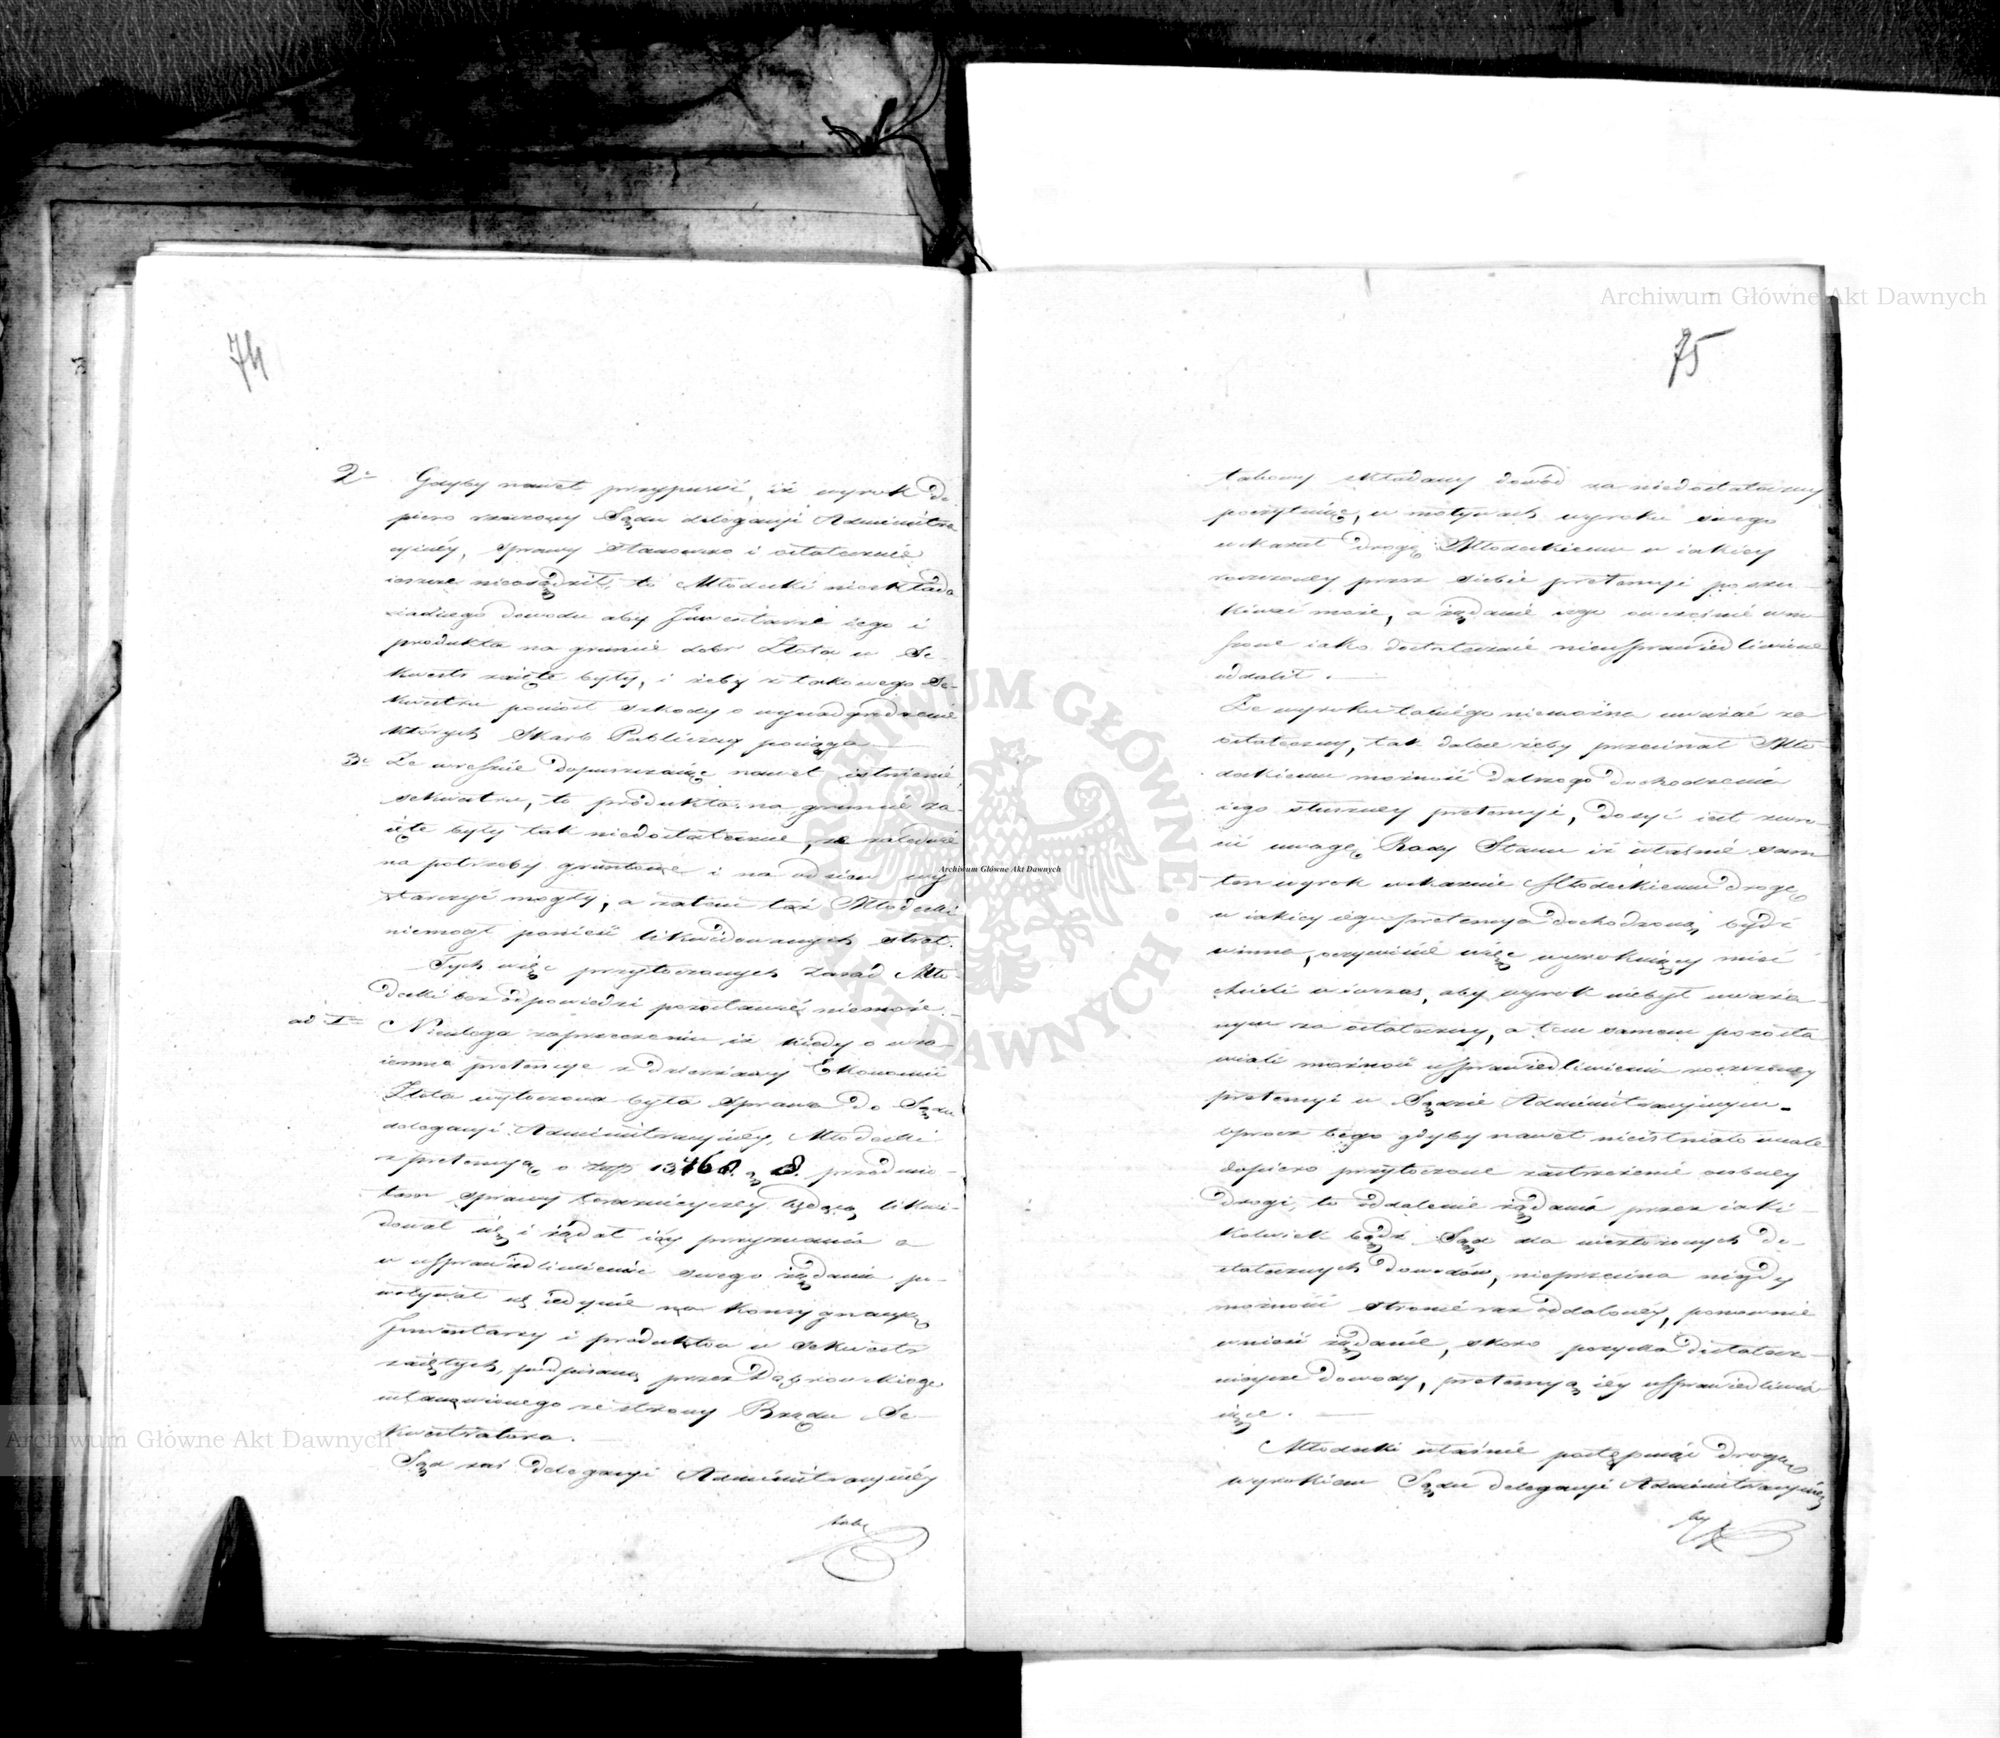 74
2o Gdyby nawet przypuścić, iż wyrok do-
piero rzeczony Sądu delegacyi Administra-
cyinéy, sprawy stanowczo i ostatecznie
ieszcze nieosądził, to Młodecki nieskłada
żadnego dowodu aby Inwentarze iego i
produkta na gruncie dobr Złota w Se-
kwestr zaięte były, i żeby z takowego Se-
kwestru poniosł szkody o wynadgrodzenie
których Skarb Publiczny pociąga
3o Że wreszcie dopuszczaiąc nawet istnienie
sekwestru, to produkta na gruncie za-
ięte były tak niedostateczne, że zaledwie
na potrzeby gruntowe i na odsiew wy
starczyć mogły, a zatem też Młodecki
niemogł ponieść likwidowanych strat.
Tych więc przytoczonych zasad Mło-
decki bez odpowiedzi pozostawić niemoże.
ad Im Nieulega zaprzeczeniu iż kiedy o wza-
iemne pretensye z dzierżawy Ekonomii
Złota wytoczona była sprawa do Sądu
delegacyi Administracyinéy, Młodecki
z pretensyą o złp 13,468. 8. przedmio-
tem sprawy teraznieyszey będącą likwi-
dował się i żądał iéy przyznania a
w usprawiedliwienie swego żądania po-
woływał się iedynie na konsygnacyą
Inwentarzy i produktow w sekwestr
zaiętych, podpisaną przez Dąbrowskiego
ustanowionego ze strony Rządu Se-
kwestratora.
Sąd zaś delegacyi Administracyinéy
75
takowy składany dowód za niedostateczny
poczytuiąc, w motywach wyroku swego
wskazał drogę Młodeckiemu w iakiey
rzeczoney przez siebie pretensyi poszu-
kiwać może, a żądanie iego wcześnie wnie-
sione iako dostatecznie nieusprawiedliwione
oddalił.
Że wyroku takiego niemożna uważać za
ostateczny, tak dalece żeby przecinał Mło-
deckiemu możność dalszego dochodzenia
iego słuszney pretensyi, dosyć iest zwro-
cić uwagę Rady Stanu iż właśnie sam
ten wyrok wskazuie Młodeckiemu drogę
w iakiey iego pretensya dochodzoną bydź
winna, oczywiście więc wyrokuiący mieć
chcieli w iaczas, aby wyrok niebył uważa-
nym za ostateczny, a tem samem pozosta
wiali możność usprawiedliwienia rzeczoney
pretensyi w Sądzie Administracyjnym.
oprocz tego gdyby nawet nieistniało wcale
dopiero przytoczone zastrzeżenie osobney
drogi, to oddalenie żądania przez iaki-
kolwiek bądź Sąd dla niezłożonych do-
statecznych dowodów, nieprzecina nigdy
możność stronie raz oddalonéy, ponownie
wnieść żądanie, skoro pozyska dostatecz-
nieysze dowody, pretensyą iéy usprawiedliwia-
iące.
Młodecki właśnie postępuiąc drogą
wyrokiem Sądu delegacyi Administracyinéy